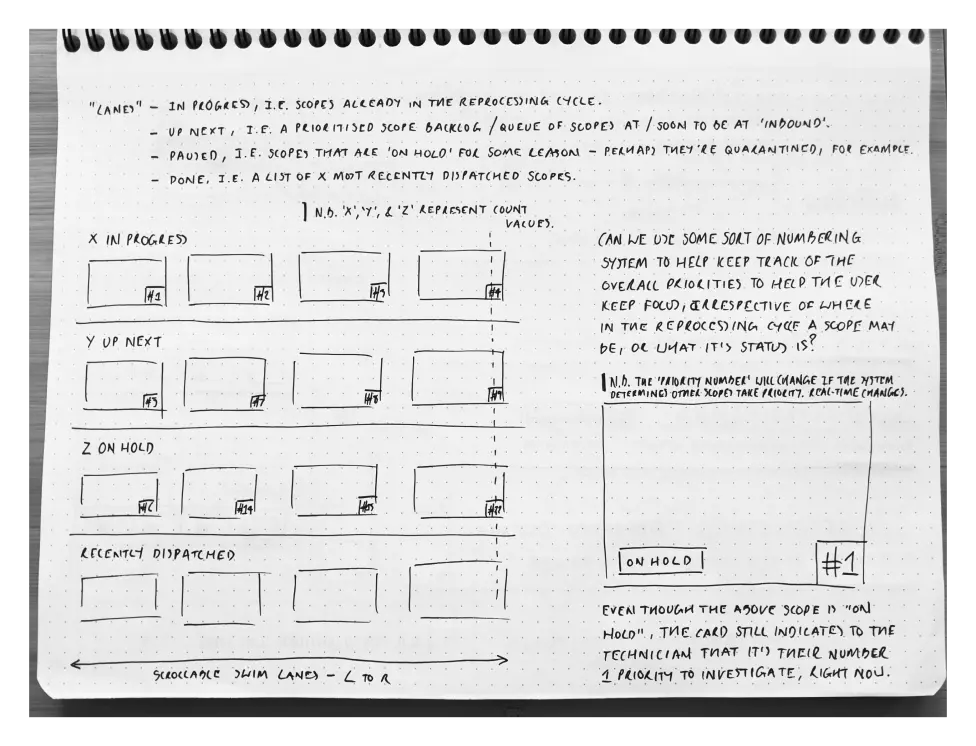 "LANES" – IN PROGRESS, I.E. SCOPES ALREADY IN THE REPROCESSING CYCLE.
– UP NEXT, I.E. A PRIORITISED SCOPE BACKLOG / QUEUE OF SCOPES AT / SOON TO BE AT 'INBOUND'.
– PAUSED, I.E. SCOPES THAT ARE 'ON HOLD' FOR SOME REASON – PERHAPS THEY'RE QUARANTINED, FOR EXAMPLE.
– DONE, I.E. A LIST OF X MOST RECENTLY DISPATCHED SCOPES.
N.B. 'X', 'Y', & 'Z' REPRESENT COUNT
VALUES.
X IN PROGRESS
#1 #2 #3 #4
Y UP NEXT
#5 #7 #8 #9
Z ON HOLD
#6 #14
RECENTLY DISPATCHED
SCROLLABLE SWIM LANES – L TO R
CAN WE USE SOME SORT OF NUMBERING
SYSTEM TO HELP KEEP TRACK OF THE
OVERALL PRIORITIES TO HELP THE USER
KEEP FOCUS, IRRESPECTIVE OF WHERE
IN THE REPROCESSING CYCLE A SCOPE MAY
BE, OR WHAT IT'S STATUS IS?
N.B. THE 'PRIORITY NUMBER' WILL CHANGE IF THE SYSTEM
DETERMINES OTHER SCOPES TAKE PRIORITY. REAL-TIME CHANGES.
ON HOLD #1
EVEN THOUGH THE ABOVE SCOPE IS "ON
HOLD", THE CARD STILL INDICATES TO THE
TECHNICIAN THAT IT'S THEIR NUMBER
1 PRIORITY TO INVESTIGATE, RIGHT NOW.